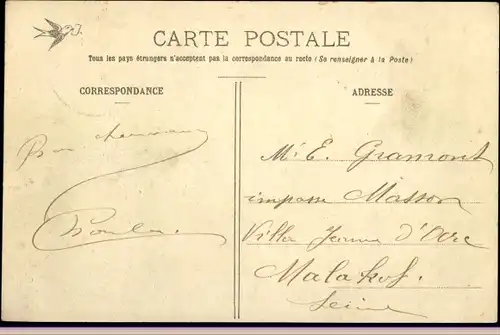 CARTE POSTALE
Tous les pays étrangers n'acceptent pas la correspondance au recto (Se renseigner à la Poste)
CORRESPONDANCE
ADRESSE
Bon
Mr E. Gramont
impasse Masson
Villa Jeanne d'Arc
Malakof.
Seine